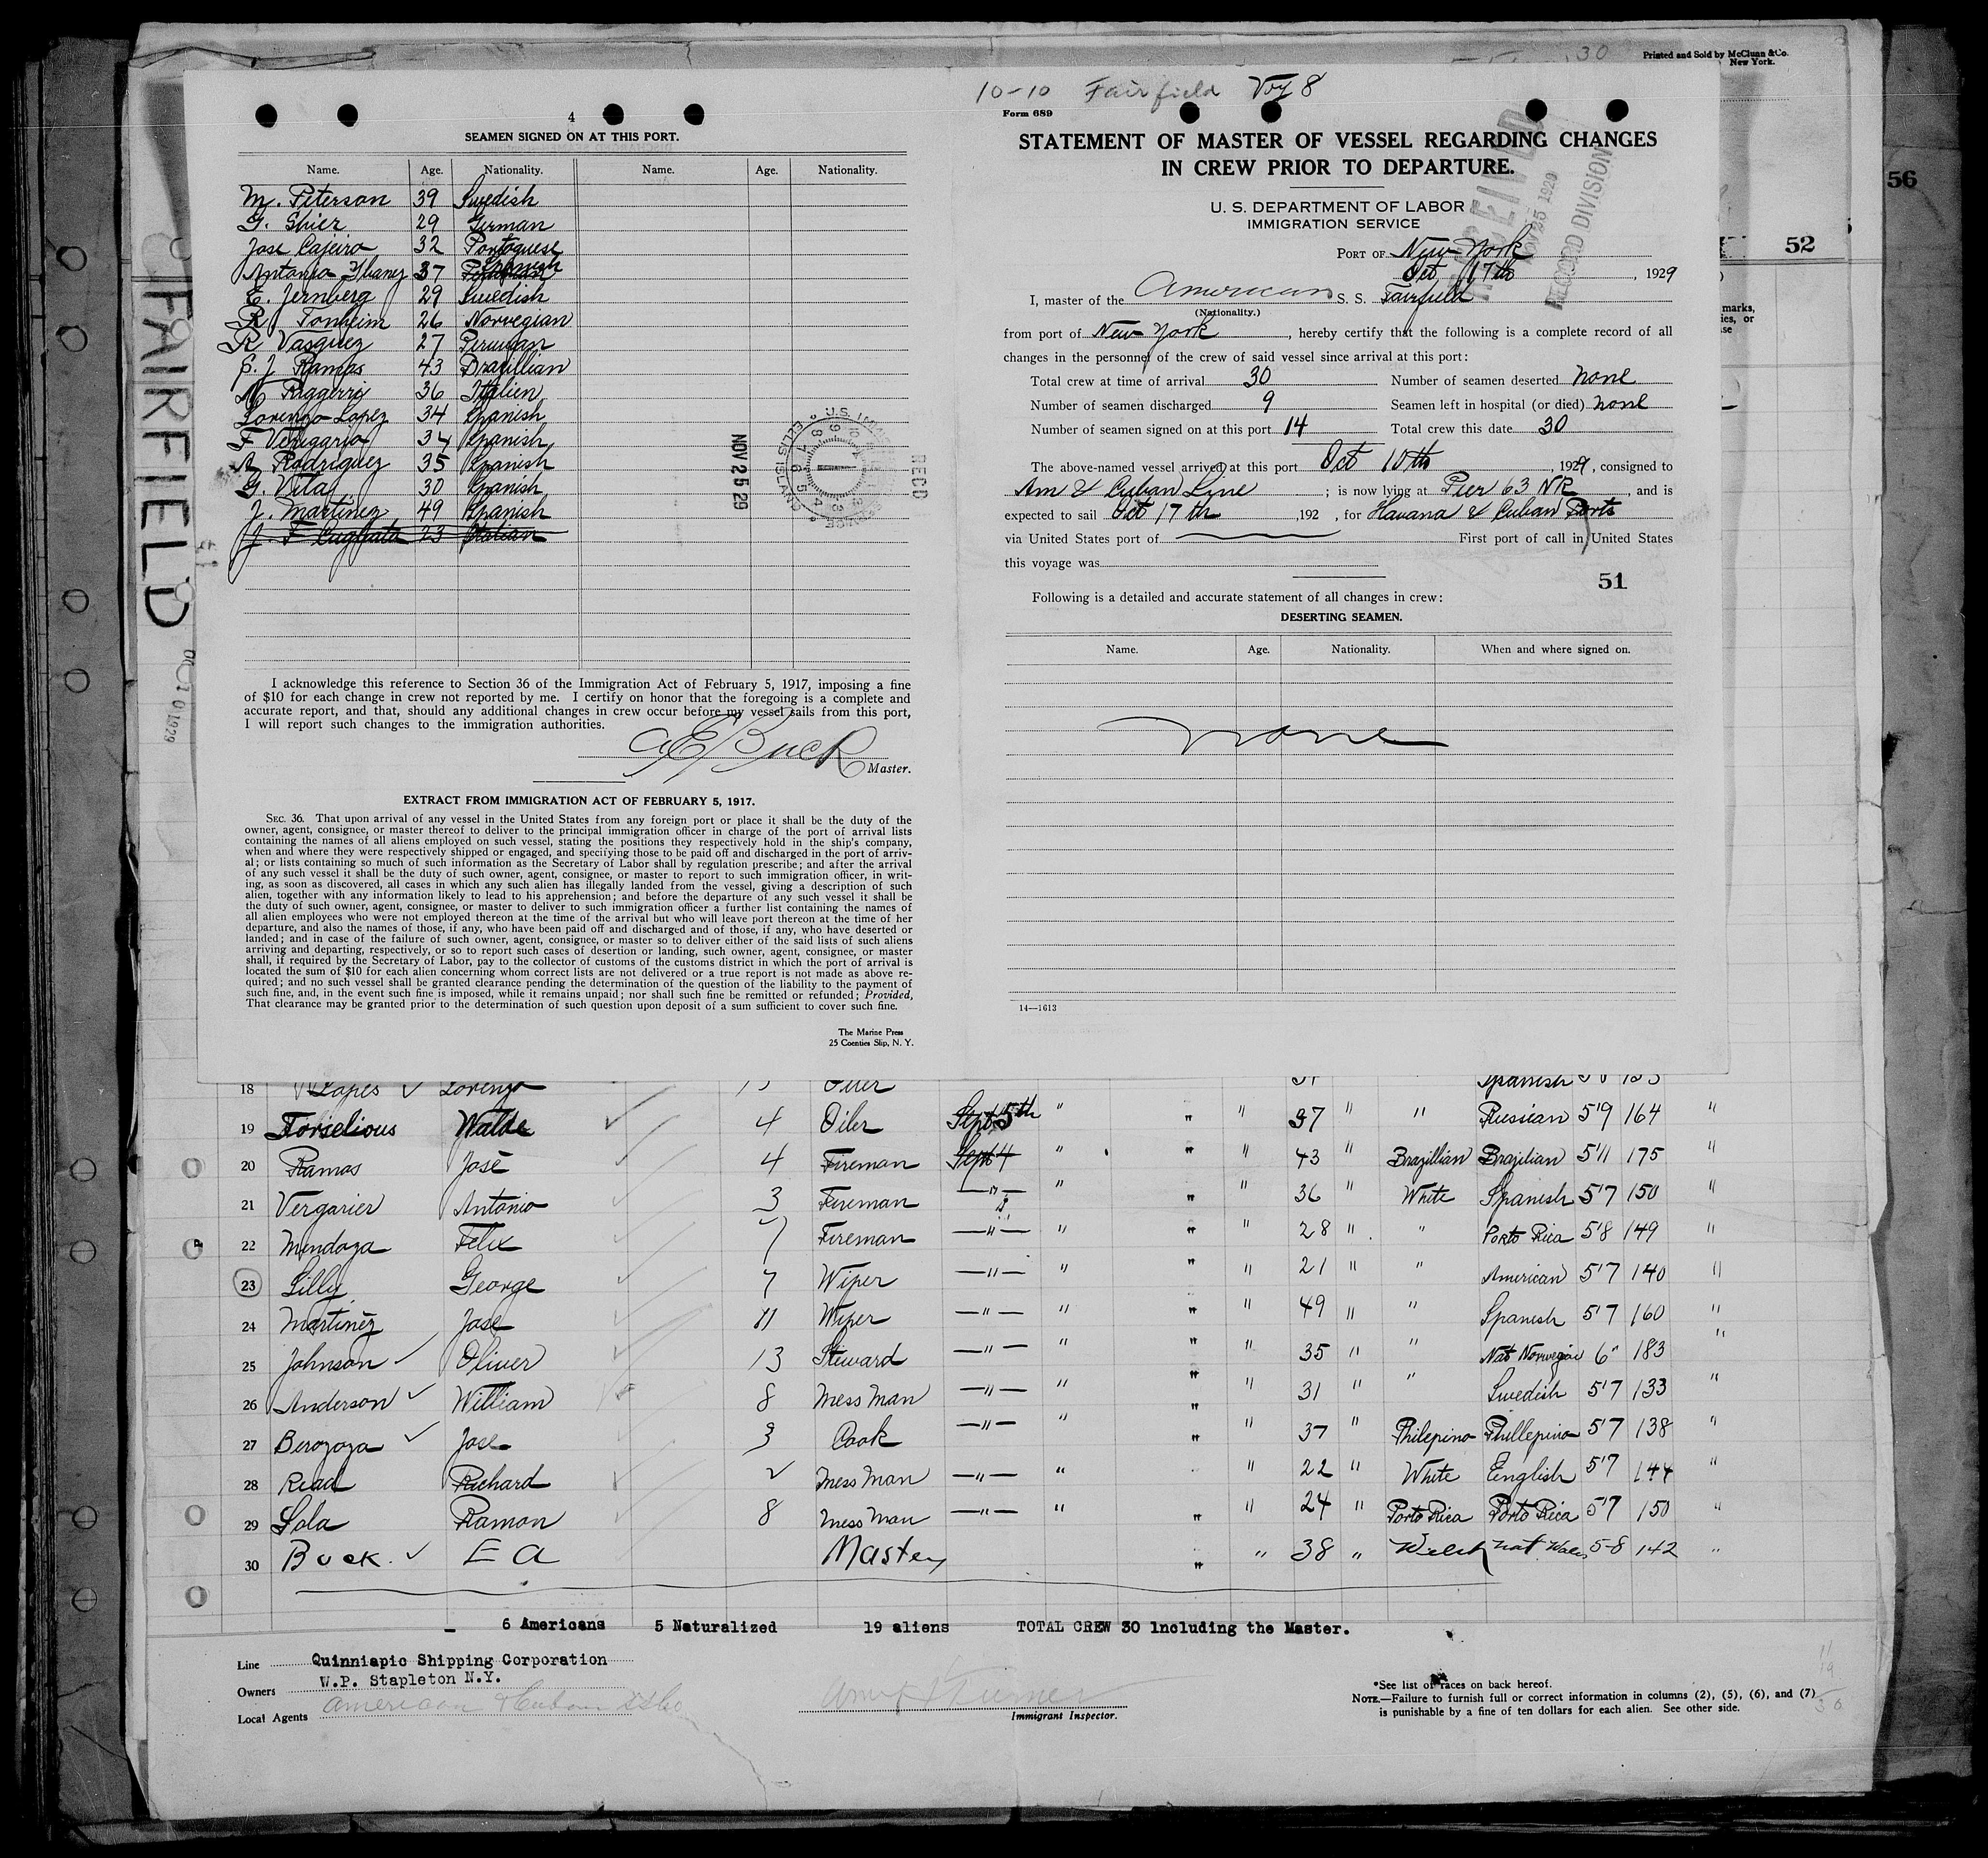 Printed and Sold by McClunn & Co.
New York.
56
52
marks,
ies, or
se
FAIRFIELD
OCT 10 1929
4
SEAMEN SIGNED ON AT THIS PORT.
Name. Age. Nationality. Name. Age. Nationality.
M. Peterson 39 Swedish
G. Shier 29 German
Jose Cajeiro 32 Portoguese
Antonio Ybanez 37 Spanish
E. Jernberg 29 Swedish
R. Tonheim 26 Norvegian
R Vasquez 27 Peruvian
S. J Ramos 43 Brazillian
N Riggerri 36 Italien
Lorenzo Lopez 34 Spanish
F Verigario 34 Spanish
A Rodriguez 35 Spanish
G. Vila 30 Spanish
J. Martinez 49 Spanish
J. F Cugliata 23 Italian
NOV 25 29
U.S. IMMIGRANCE SERVICE ELLIS ISLAND
RECD
I acknowledge this reference to Section 36 of the Immigration Act of February 5, 1917, imposing a fine
of $10 for each change in crew not reported by me. I certify on honor that the foregoing is a complete and
accurate report, and that, should any additional changes in crew occur before my vessel sails from this port,
I will report such changes to the immigration authorities.
E Buck
Master.
EXTRACT FROM IMMIGRATION ACT OF FEBRUARY 5, 1917.
SEC. 36. That upon arrival of any vessel in the United States from any foreign port or place it shall be the duty of the
owner, agent, consignee, or master thereof to deliver to the principal immigration officer in charge of the port of arrival lists
containing the names of all aliens employed on such vessel, stating the positions they respectively hold in the ship's company,
when and where they were respectively shipped or engaged, and specifying those to be paid off and discharged in the port of arriv-
al; or lists containing so much of such information as the Secretary of Labor shall by regulation prescribe; and after the arrival
of any such vessel it shall be the duty of such owner, agent, consignee, or master to report to such immigration officer, in writ-
ing, as soon as discovered, all cases in which any such alien has illegally landed from the vessel, giving a description of such
alien, together with any information likely to lead to his apprehension; and before the departure of any such vessel it shall be
the duty of such owner, agent, consignee, or master to deliver to such immigration officer a further list containing the names of
all alien employees who were not employed thereon at the time of the arrival but who will leave port thereon at the time of her
departure, and also the names of those, if any, who have been paid off and discharged and of those, if any, who have deserted or
landed; and in case of the failure of such owner, agent, consignee, or master so to deliver either of the said lists of such aliens
arriving and departing, respectively, or so to report such cases of desertion or landing, such owner, agent, consignee, or master
shall, if required by the Secretary of Labor, pay to the collector of customs of the customs district in which the port of arrival is
located the sum of $10 for each alien concerning whom correct lists are not delivered or a true report is not made as above re-
quired; and no such vessel shall be granted clearance pending the determination of the question of the liability to the payment of
such fine, and, in the event such fine is imposed, while it remains unpaid; nor shall such fine be remitted or refunded; Provided,
That clearance may be granted prior to the determination of such question upon deposit of a sum sufficient to cover such fine.
The Marine Press
25 Coenties Slip, N. Y.
10-10 Fairfield Voy 8
Form 689
STATEMENT OF MASTER OF VESSEL REGARDING CHANGES
IN CREW PRIOR TO DEPARTURE.
U. S. DEPARTMENT OF LABOR
IMMIGRATION SERVICE
RECEIVED NOV 25 1929 RECORD DIVISION
PORT OF New York
Oct 17th, 1929
I, master of the American S. S. Fairfield
(Nationality.)
from port of New York, hereby certify that the following is a complete record of all
changes in the personnel of the crew of said vessel since arrival at this port:
Total crew at time of arrival 30 Number of seamen deserted none
Number of seamen discharged 9 Seamen left in hospital (or died) none
Number of seamen signed on at this port 14 Total crew this date 30
The above-named vessel arrived at this port Oct 10th, 1929, consigned to
Am & Cuban Line; is now lying at Pier 63 NR, and is
expected to sail Oct 17th, 192 , for Havana & Cuban Ports
via United States port of First port of call in United States
this voyage was
51
Following is a detailed and accurate statement of all changes in crew:
DESERTING SEAMEN.
Name. Age. Nationality. When and where signed on.
none
14—1613
18 Lopes Lorenzo Oiler Spanish
19 Torselious Walde 4 Oiler Sept 5th " " " 37 " " Russian 5'9 164 "
20 Ramos José 4 Fireman Sept 4 " " " 43 " Brazillian Brazilian 5'11 175 "
21 Vergarier Antonio 3 Fireman " " " " 36 " White Spanish 5'7 150 "
22 Mendoza Felix 7 Fireman " " " " 28 " " Porto Rica 5'8 149 "
23 Lilly George 7 Wiper " " " " 21 " " American 5'7 140 "
24 Martinez Jose 11 Wiper " " " " 49 " " Spanish 5'7 160 "
25 Johnson Oliver 13 Steward " " " " 35 " " Nat Norwegian 6" 183 "
26 Anderson William 8 Mess Man " " " " 31 " " Swedish 5'7 133 "
27 Berozoza Jose 3 Cook " " " " 37 " Philepino Phillepino 5'7 138 "
28 Read Richard Mess Man " " " 22 " White English 5'7 144 "
29 Sola Ramon 8 Mess Man " " " " 24 " Porto Rica Porto Rica 5'7 150 "
30 Buck E A Master " " 38 " Welsh nat Wales 5-8 142 "
6 Americans 5 Naturalized 19 aliens TOTAL CREW 30 including the Master.
Line Quinniapic Shipping Corporation
Owners W.P. Stapleton N.Y.
Local Agents American & Cuban SS Co
Immigrant Inspector.
*See list of races on back hereof.
NOTE.—Failure to furnish full or correct information in columns (2), (5), (6), and (7)
is punishable by a fine of ten dollars for each alien. See other side.